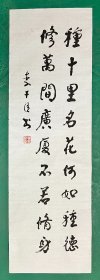 種十里名花何如種德
修萬間廣廈不若脩身